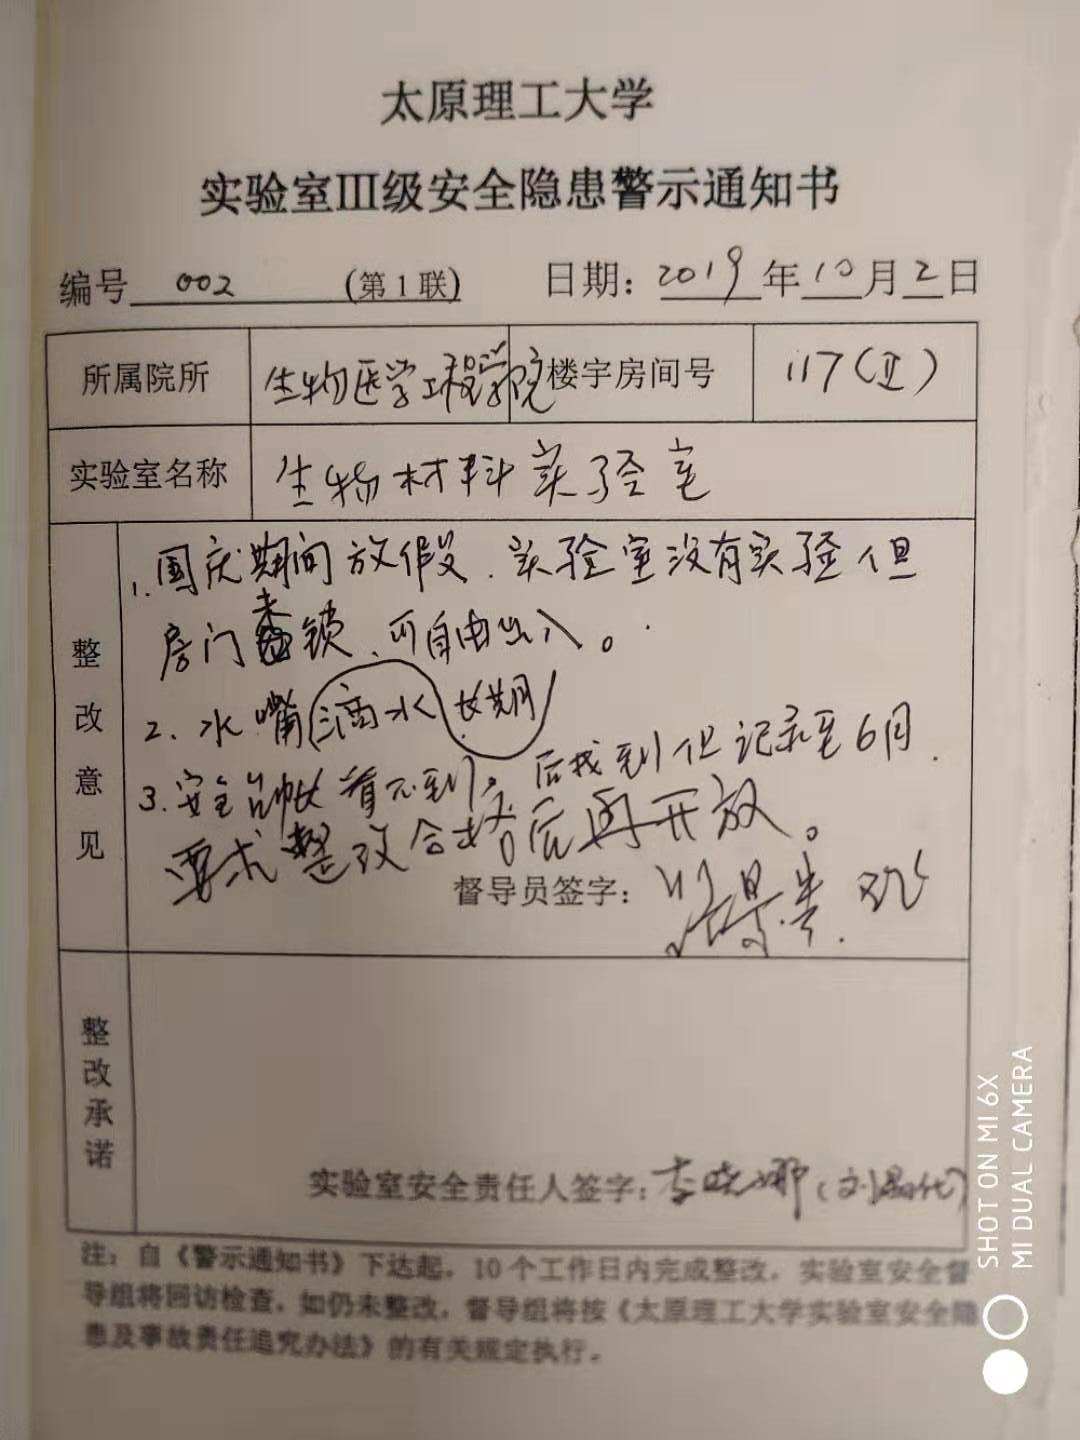 太原理工大学
实验室III级安全隐患警示通知书
编号 002 (第1联) 日期: 2019年10月2日
所属院所 生物医学工程学院 楼宇房间号 117(II)
实验室名称 生物材料实验室
整改意见
1. 国庆期间放假、实验室没有实验但
房门未锁、可自由出入。
2. 水嘴滴水 长期
3. 安全台帐 看不到, 后找到但记录至6月.
要求整改合格后再开放。
督导员签字:
整改承诺
实验室安全责任人签字: 李晓娜(刘 代)
注: 自《警示通知书》下达起, 10个工作日内完成整改, 实验室安全督
导组将回访检查, 如仍未整改, 督导组将按《太原理工大学实验室安全隐
患及事故责任追究办法》的有关规定执行。
SHOT ON MI 6X
MI DUAL CAMERA